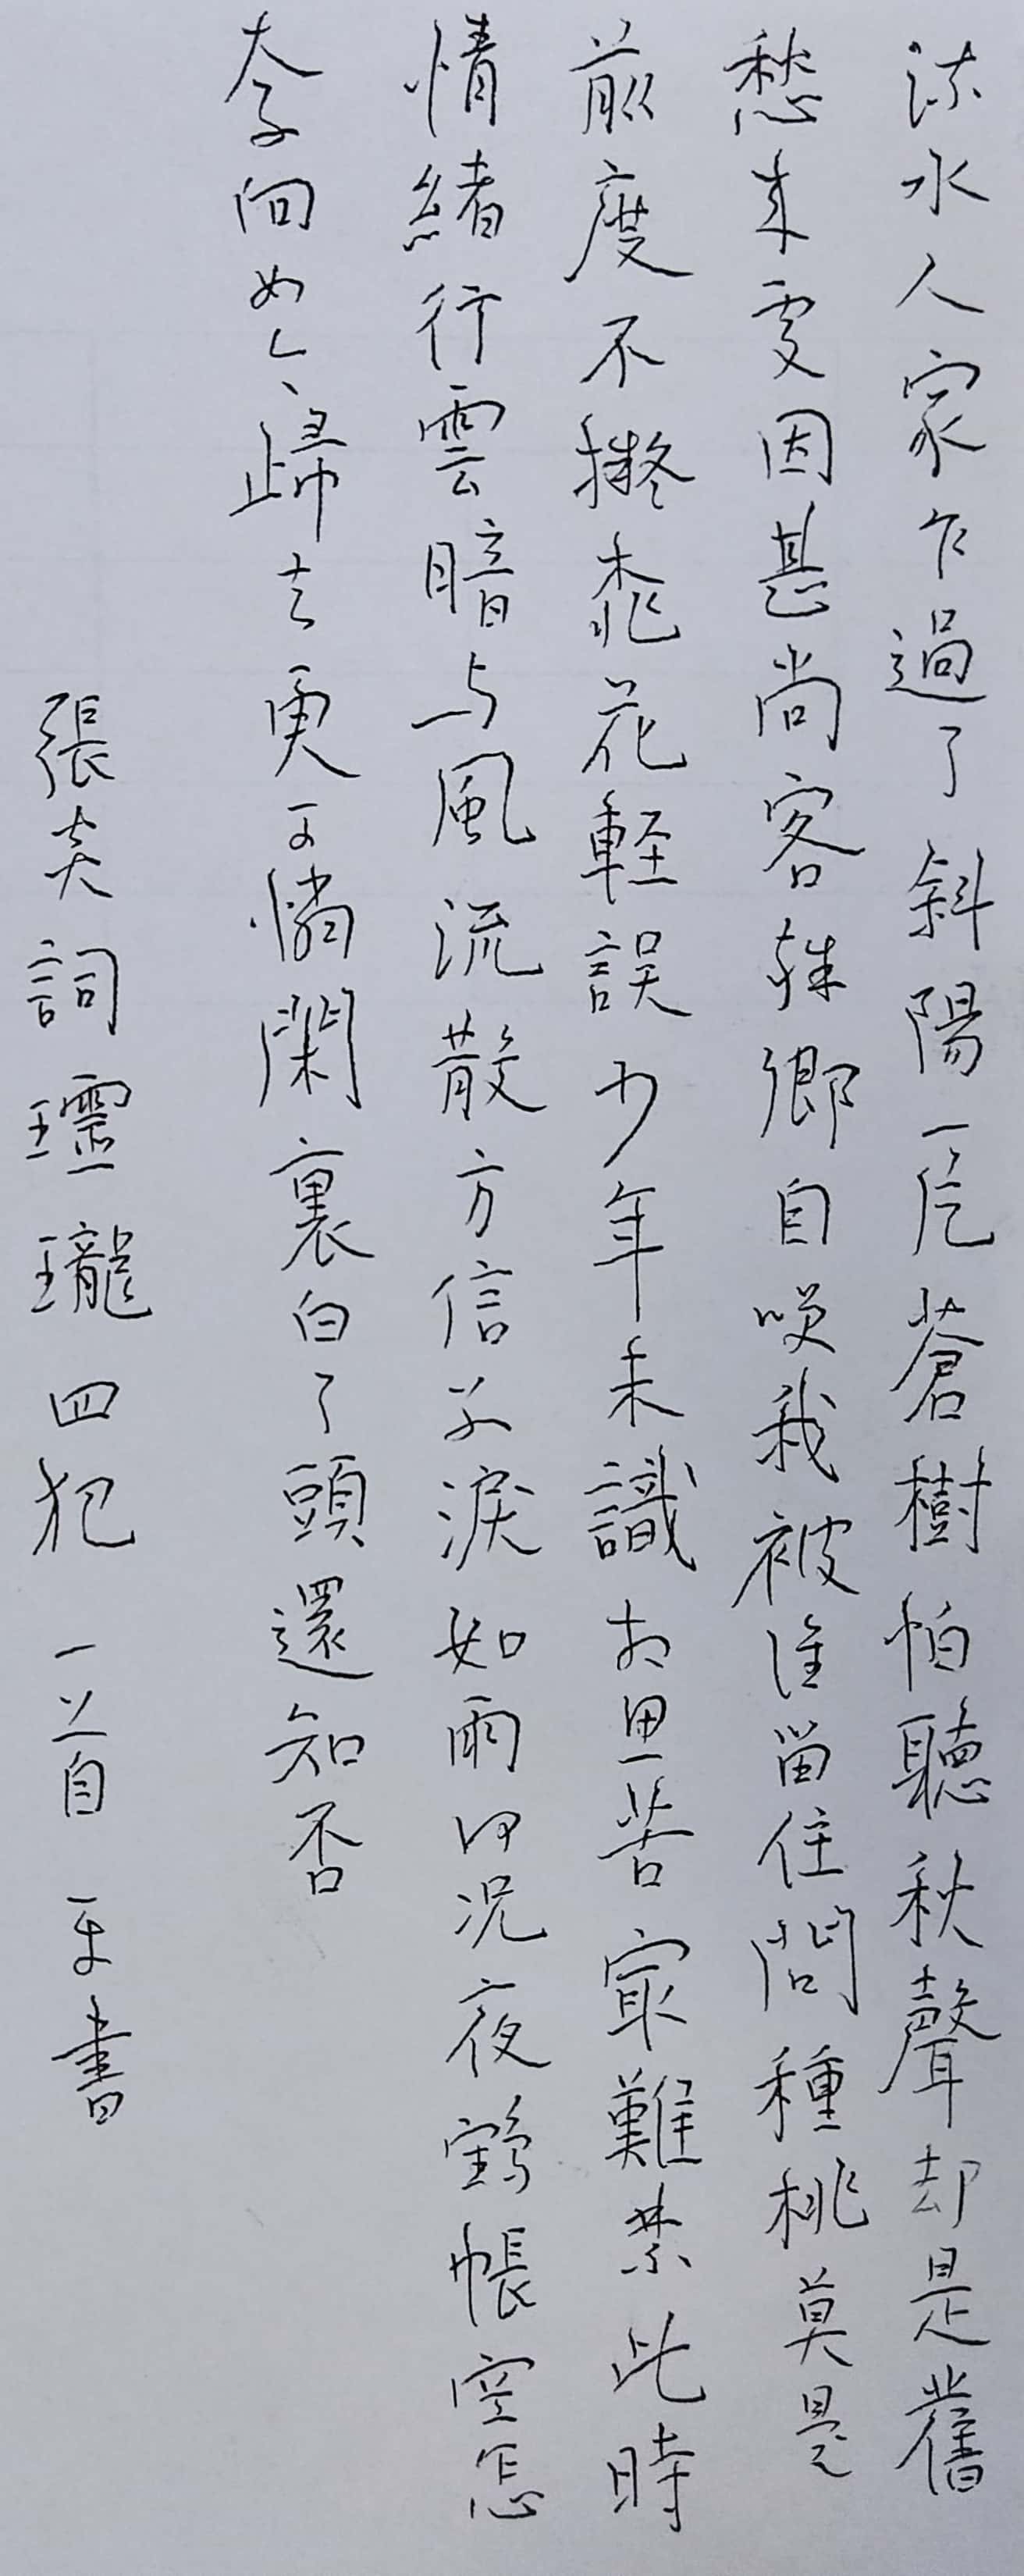 流水人家乍過了斜陽一片蒼樹怕聽秋聲却是舊
愁來處因甚尚客殊鄉自笑我被誰留住問種桃莫是
前度不擬桃花輕誤少年未識相思苦最難禁此時
情緒行雲暗与風流散方信別淚如雨何況夜鶴帳空怎
奈向如今歸去更可憐閑裏白了頭還知否
張炎詞瓏四犯一首書